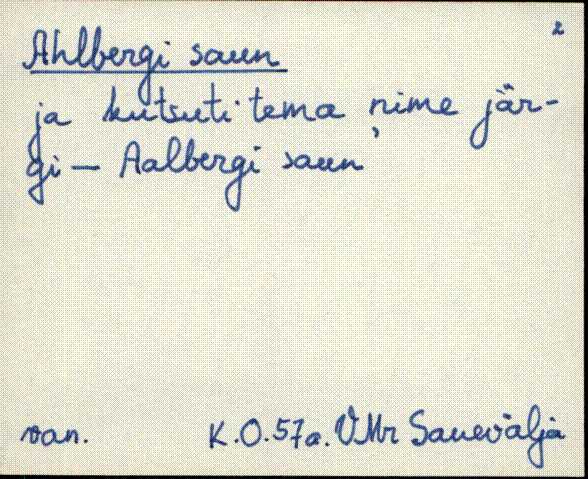 2
Ahlbergi saun
ja kutsuti tema nime jär-
gi – Aalbergi saun
van. K.O. 57a. VMr Sauevälja